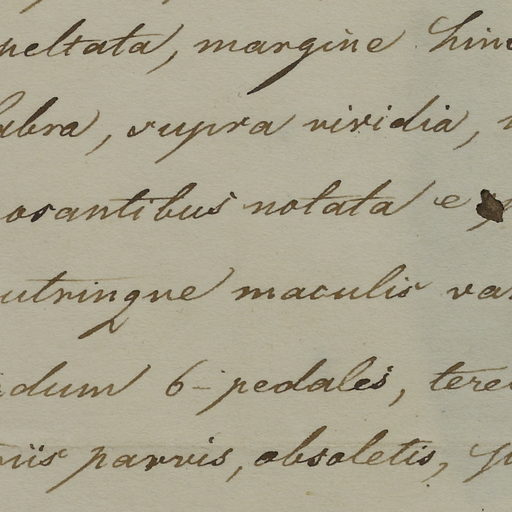 peltata, margine hinc
abra, supra viridia,
osantibus notata e
utrinque maculis va
dum 6-pedales, tere
niis parvis, obsoletis,